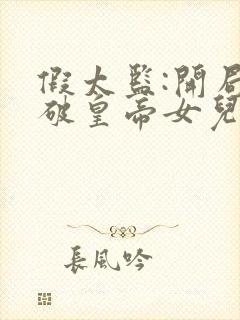 假太監:開局
破皇帝女兒
長風吟